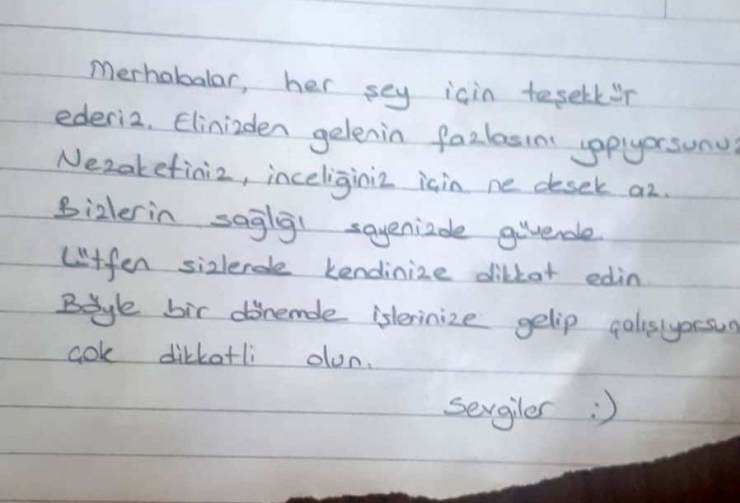 Merhabalar, her şey için teşekkür
ederiz. Elinizden gelenin fazlasını yapıyorsunuz
Nezaketiniz, inceliğiniz için ne desek az.
Bizlerin sağlığı sayenizde güvende
Lütfen sizlerde kendinize dikkat edin.
Böyle bir dönemde işlerinize gelip çalışıyorsun
çok dikkatli olun.
Sevgiler :)